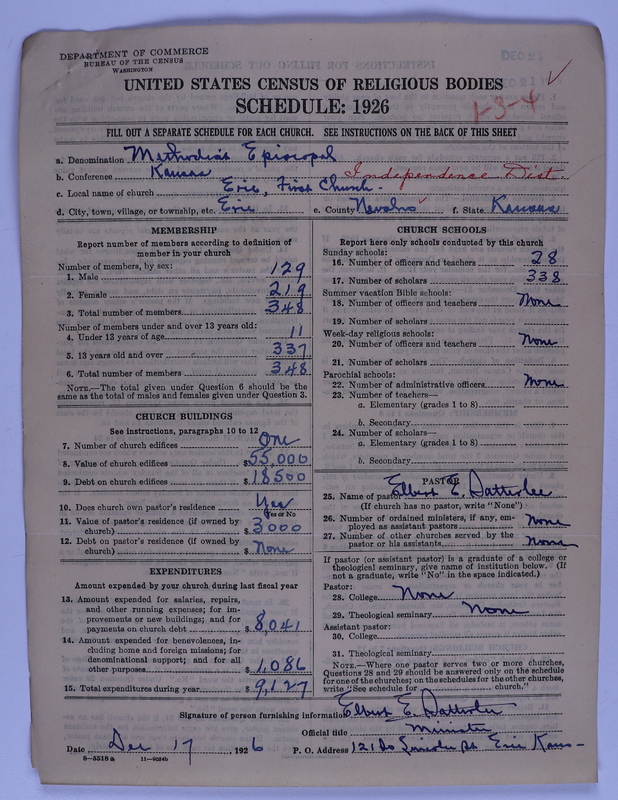 DEPARTMENT OF COMMERCE
BUREAU OF THE CENSUS
WASHINGTON
UNITED STATES CENSUS OF RELIGIOUS BODIES
SCHEDULE: 1926
1-3-4
FILL OUT A SEPARATE SCHEDULE FOR EACH CHURCH. SEE INSTRUCTIONS ON THE BACK OF THIS SHEET
a. Denomination Methodist Episcopal
b. Conference Kansas Independence Dist.
c. Local name of church Erie, First Church.
d. City, town, village, or township, etc. Erie e. County Neosho f. State Kansas
MEMBERSHIP
Report number of members according to definition of
member in your church
Number of members, by sex:
1. Male 129
2. Female 219
3. Total number of members 348
Number of members under and over 13 years old:
4. Under 13 years of age 11
5. 13 years old and over 337
6. Total number of members 348
NOTE.—The total given under Question 6 should be
same as the total of males and females given under Question 3.
CHURCH BUILDINGS
See instructions, paragraphs 10 to 12
7. Number of church edifices One
8. Value of church edifices $55,000
9. Debt on church edifices $18500
10. Does church own pastor's residence Yes
Yes or No
11. Value of pastor's residence (if owned by
church) $3000
12. Debt on pastor's residence (if owned by
church) $None
EXPENDITURES
Amount expended by your church during last fiscal year
13. Amount expended for salaries, repairs,
and other running expenses; for im-
provements or new buildings; and for
payments on church debt $8,041
14. Amount expended for benevolences, in-
cluding home and foreign missions; for
denominational support; and for all
other purposes $1,086
15. Total expenditures during year $9,127
CHURCH SCHOOLS
Report here only schools conducted by this church
Sunday schools:
16. Number of officers and teachers 28
17. Number of scholars 338
Summer vacation Bible schools:
18. Number of officers and teachers None
19. Number of scholars
Week-day religious schools:
20. Number of officers and teachers None
21. Number of scholars
Parochial schools:
22. Number of administrative officers None
23. Number of teachers—
a. Elementary (grades 1 to 8)
b. Secondary
24. Number of scholars—
a. Elementary (grades 1 to 8)
b. Secondary
PASTOR
25. Name of pastor Elbert E. Satterlee
(If church has no pastor, write "None")
26. Number of ordained ministers, if any, em-
ployed as assistant pastors None
27. Number of other churches served by the
pastor or his assistants None
If pastor (or assistant pastor) is a graduate of a college or
theological seminary, give name of institution below. (If
not a graduate, write "No" in the space indicated.)
Pastor:
28. College None
29. Theological seminary None
Assistant pastor:
30. College
31. Theological seminary
NOTE.—Where one pastor serves two or more churches,
Questions 28 and 29 should be answered only on the schedule
for one of the churches; on the schedules for the other churches,
write "See schedule for church."
Signature of person furnishing information Elbert E. Satterlee
Official title Minister
Date Dec 17, 1926 P. O. Address 121 So Erie Kans
8—5518 a 11—9034b